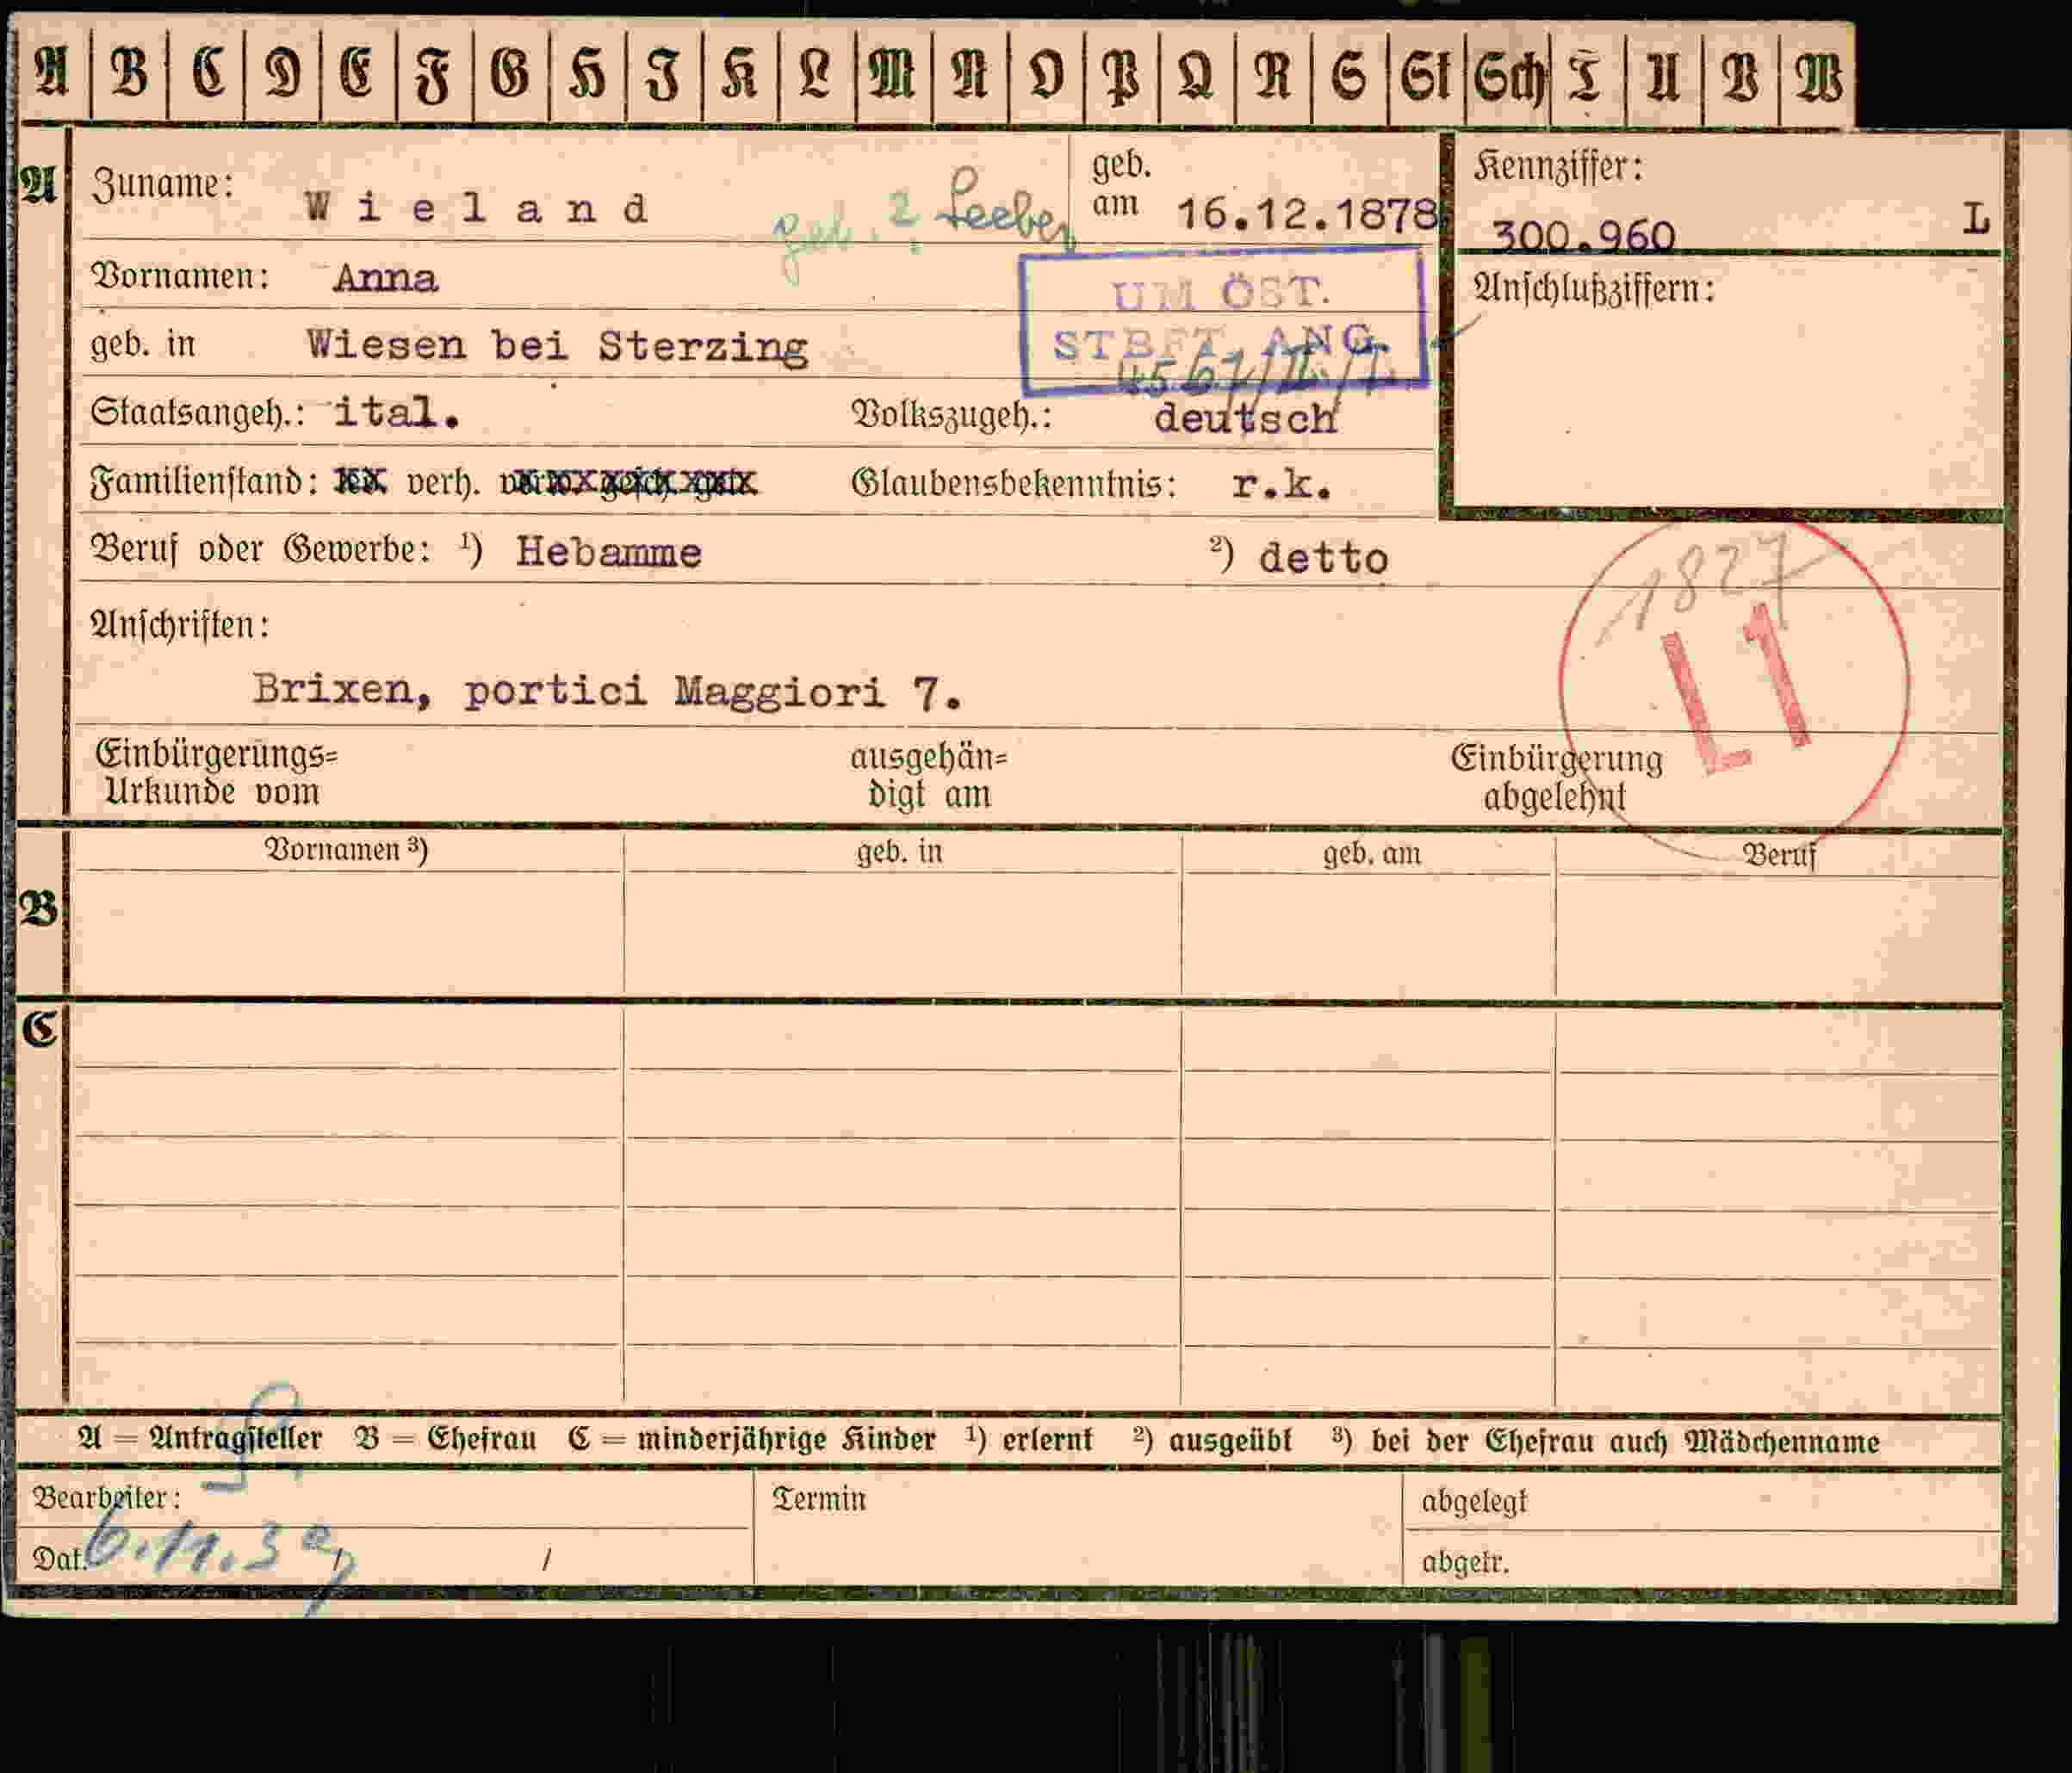 A B C D E F G H J K L M N O P Q R S St Sch T U V W
A Zuname: Wieland geb. ? Seeber geb. am 16.12.1878 Kennziffer: 300.960 L
Vornamen: Anna UM ÖST. Anschlußziffern:
geb. in Wiesen bei Sterzing STBFT. ANG.
Staatsangeh.: ital. Volkszugeh.: deutsch
Familienstand: verh. Glaubensbekenntnis: r.k.
Beruf oder Gewerbe: ¹) Hebamme ²) detto 1827
Anschriften: L1
Brixen, portici Maggiori 7.
Einbürgerungs= ausgehän= Einbürgerung
Urkunde vom digt am abgelehnt
Vornamen ³) geb. in geb. am Beruf
B
C
A = Antragsteller B = Ehefrau C = minderjährige Kinder ¹) erlernt ²) ausgeübt ³) bei der Ehefrau auch Mädchenname
Bearbeiter: Termin abgelegt
Dat. 6.11.39 / abgetr.